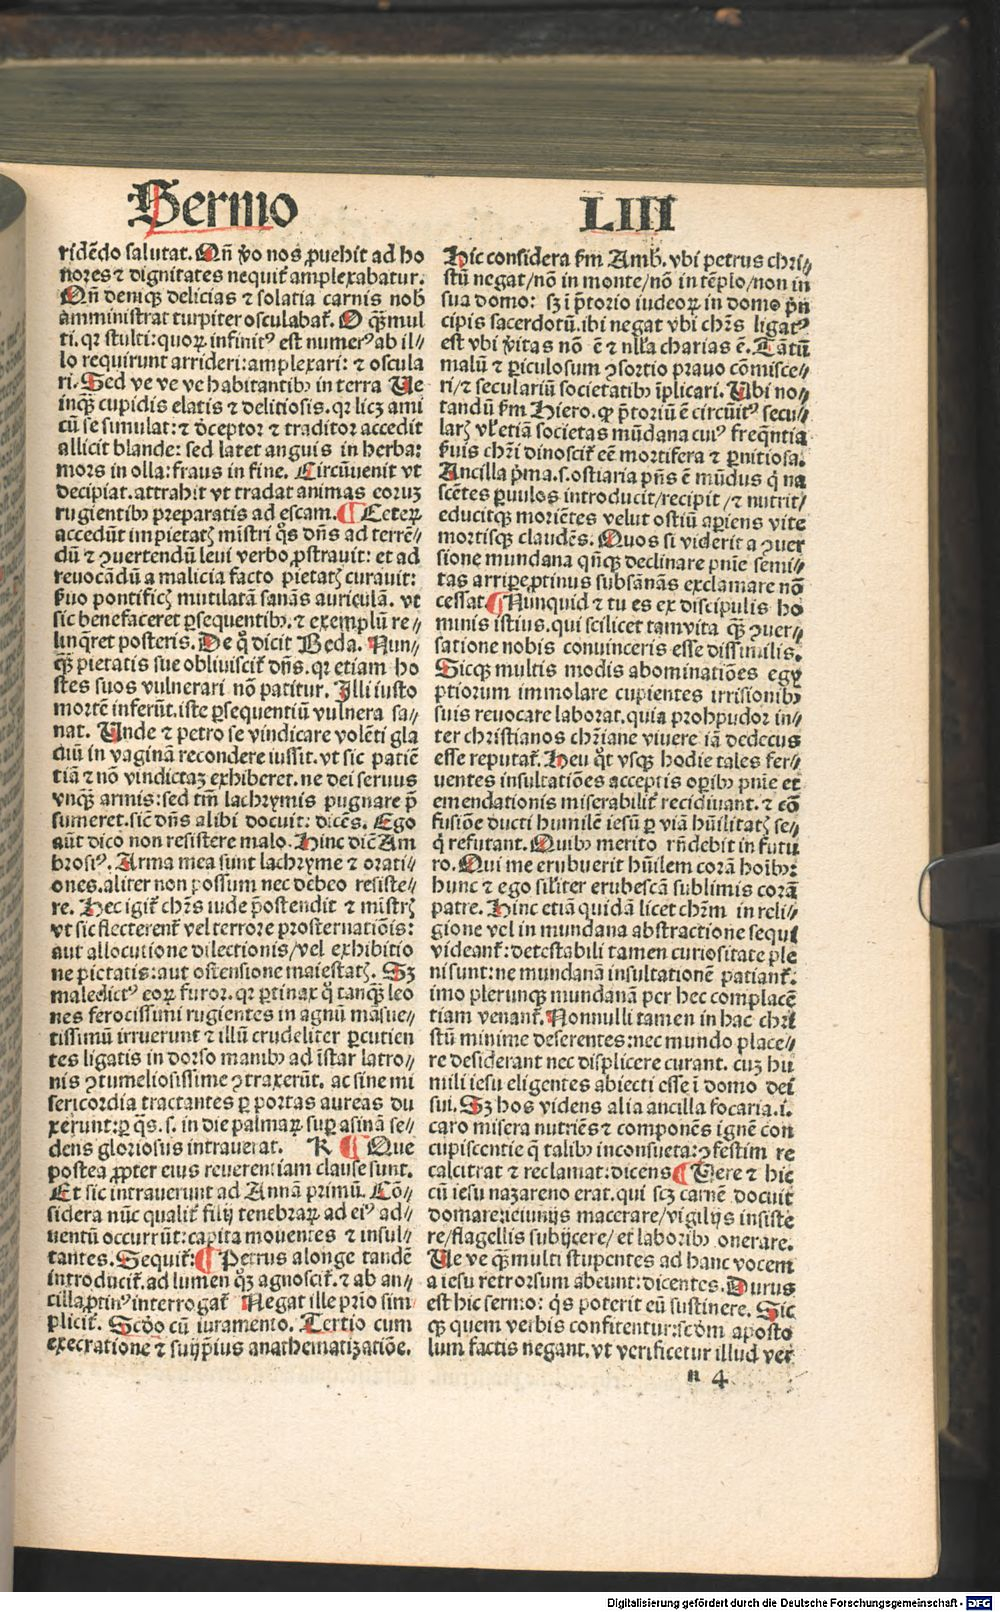 Sermo LIII
ridēdo salutat. Qn̄ v̄o nos ꝓuehit ad ho
nores ⁊ dignitates nequit᷑ amplexabatur.
Qn̄ deniqꝫ delicias ⁊ solatia carnis nob̄
amministrat turpiter osculabat᷑. O qꝫ mul
ti. qꝛ stulti: quoꝝ infinitꝰ est numerꝰ ab il⸗
lo requirunt arrideri: amplexari: ⁊ oscula
ri. Sed ve ve ve habitantibꝫ in terra Ue
inqꝫ cupidis elatis ⁊ delitiosis. qꝛ licꝫ ami
cū se simulat: ⁊ d̄ceptor ⁊ traditor accedit
allicit blande: sed latet anguis in herba:
mors in olla: fraus in fine. Circūuenit vt
decipiat. attrahit vt tradat animas eoruꝫ
rugientibꝫ preparatis ad escam. ¶ Ceteꝝ
accedūt impietatꝭ mistri q̊s dn̄s ad terrē⸗
dū ⁊ ꝯuertendū leui verbo ꝓstrauit: et ad
reuocādū a malicia facto pietatꝭ curauit:
ẜuo pontificꝭ mutilatā sanās auriculā. vt
sic benefaceret ꝑsequentibꝫ. ⁊ exemplū re⸗
linq̄ret posteris. De q̊ dicit Beda. Nun⸗
qꝫ pietatis sue obliuiscit᷑ dn̄s. qꝛ etiam ho
stes suos vulnerari nō patitur. Illi iusto
mortē inferūt. iste ꝑsequentiū vulnera sa⸗
nat. Unde ⁊ petro se vindicare volēti gla
diū in vaginā recondere iussit. vt sic patiē
tiā ⁊ nō vindictaꝫ exhiberet. ne dei seruus
vnqꝫ armis: sed tm̄ lachrymis pugnare p̄
sumeret. sic̄ dn̄s alibi docuit: dicēs. Ego
aūt dico non resistere malo. Hinc dic̄ Am
brosiꝰ. Arma mea sunt lachryme ⁊ orati⸗
ones. aliter non possum nec debeo resiste⸗
re. Hec igit᷑ chr̄s iude p̄ostendit ⁊ mīstrꝭ
vt sic flecterent᷑ vel terrore prosternatiōis:
aut allocutione dilectionis/ vel exhibitio
ne pietatis: aut ostensione maiestatꝭ. Sꝫ
maledictꝰ eoꝝ furor. qꝛ ꝑtinax q̊ tanqꝫ leo
nes ferocissimi rugientes in agnū māsue⸗
tissimū irruerunt ⁊ illū crudeliter ꝑcutien
tes ligatis in dorso manibꝫ ad īstar latro⸗
nis ꝯtumeliosissime ꝯtraxerūt. ac sine mi
sericordia tractantes ꝑ portas aureas du
xerunt: ꝑ q̄s. s. in die palmaꝝ suꝑ asinā se⸗
dens gloriosus intrauerat. R ¶ Que
postea ꝓpter eius reuerentiam clause sunt.
Et sic intrauerunt ad Annā primū. Cō⸗
sidera nūc qualit᷑ filij tenebraꝝ ad eiꝰ ad⸗
uentū occurrūt: capita mouentes ⁊ insul⸗
tantes. Sequit᷑: ¶ Petrus alonge tandē
introducit᷑. ad lumen qꝫ agnoscit᷑. ⁊ ab an⸗
cilla ꝓtinꝰ interrogat᷑ Negat ille prīo sim
plicit᷑. Scd̄o cū iuramento. Tertio cum
execratione ⁊ suijp̄ius anathematizatiōe.
Hic considera ẜm Amb. vbi petrus chri⸗
stū negat/ nō in monte/ nō in tēplo/ non in
sua domo: sꝫ ī p̄torio iudeoꝝ in domo p̄n
cipis sacerdotū. ibi negat vbi chr̄s ligatꝰ
est vbi v̄itas nō ē ⁊ nlla charitas ē. Tātū
malū ⁊ ꝑiculosum ꝯsortio prauo cōmisce⸗
ri/ ⁊ seculariū societatibꝫ īplicari. Ubi no⸗
tandū ẜm Hiero. ꝙ p̄toriū ē circūitꝰ secu⸗
larꝭ vl̓ etiā societas mūdana cuiꝰ freq̄ntia
ẜuis chr̄i dinoscit᷑ eē mortifera ⁊ ꝑnitiosa.
Ancilla p̄ma. s. ostiaria pn̄s ē mūdus q̄ na
scētes ꝑuulos introducit/ recipit/ ⁊ nutrit/
educitqꝫ moriētes velut ostiū aꝑiens vite
mortisqꝫ claudēs. Quos si viderit a ꝯuer
sione mundana qn̄qꝫ declinare pn̄ie semi⸗
tas arriꝑe ꝓtinus subsānās exclamare nō
cessat ¶ Nunquid ⁊ tu es ex discipulis ho
minis istius. qui scilicet tam vita qꝫ ꝯuer⸗
satione nobis conuinceris esse dissimilis.
Sicqꝫ multis modis abominatiōes egy
ptiorum immolare cupientes irrisionibꝫ
suis reuocare laborat. quia prohpudor in⸗
ter christianos chr̄iane viuere iā dedecus
esse reputat᷑. Heu q̊t vsqꝫ hodie tales fer⸗
uentes insultatiōes acceptis oꝑibꝫ pn̄ie et
emendationis miserabilit᷑ recidiuant. ⁊ cō
fusiōe ducti humilē iesū ꝑ viā hūilitatꝭ se⸗
q̄ refutant. Quibꝫ merito rn̄debit in futu
ro. Qui me erubuerit hūilem corā hoībꝫ:
hunc ⁊ ego sil̓iter erubescā sublimis corā
patre. Hinc etiā quidā licet chr̄m in reli⸗
gione vel in mundana abstractione sequi
videant᷑: detestabili tamen curiositate ple
ni sunt: ne mundanā insultationē patiant᷑:
imo plerunqꝫ mundanā per hec complacē
tiam venant᷑. Nonnulli tamen in hac chri
stū minime deserentes: nec mundo place⸗
re desiderant nec displicere curant. cuꝫ hu
mili iesu eligentes abiecti esse ī domo dei
sui. Sꝫ hos videns alia ancilla focaria. i.
caro misera nutriēs ⁊ componēs ignē con
cupiscentie q̄ talibꝫ inconsueta: ꝯfestim re
calcitrat ⁊ reclamat: dicens ¶ Uere ⁊ hic
cū iesu nazareno erat. qui scꝫ carnē docuit
domare: ieiunijs macerare/ vigilijs insiste
re/ flagellis subijcere/ et laboribꝫ onerare.
Ue ve qꝫ multi stupentes ad hanc vocem
a iesu retrorsum abeunt: dicentes. Durus
est hic sermo: q̇s poterit eū sustinere. Sic
qꝫ quem verbis confitentur: scd̄m aposto
lum factis negant. vt verificetur illud ver
n 4
Digitalisierung gefördert durch die Deutsche Forschungsgemeinschaft - DFG